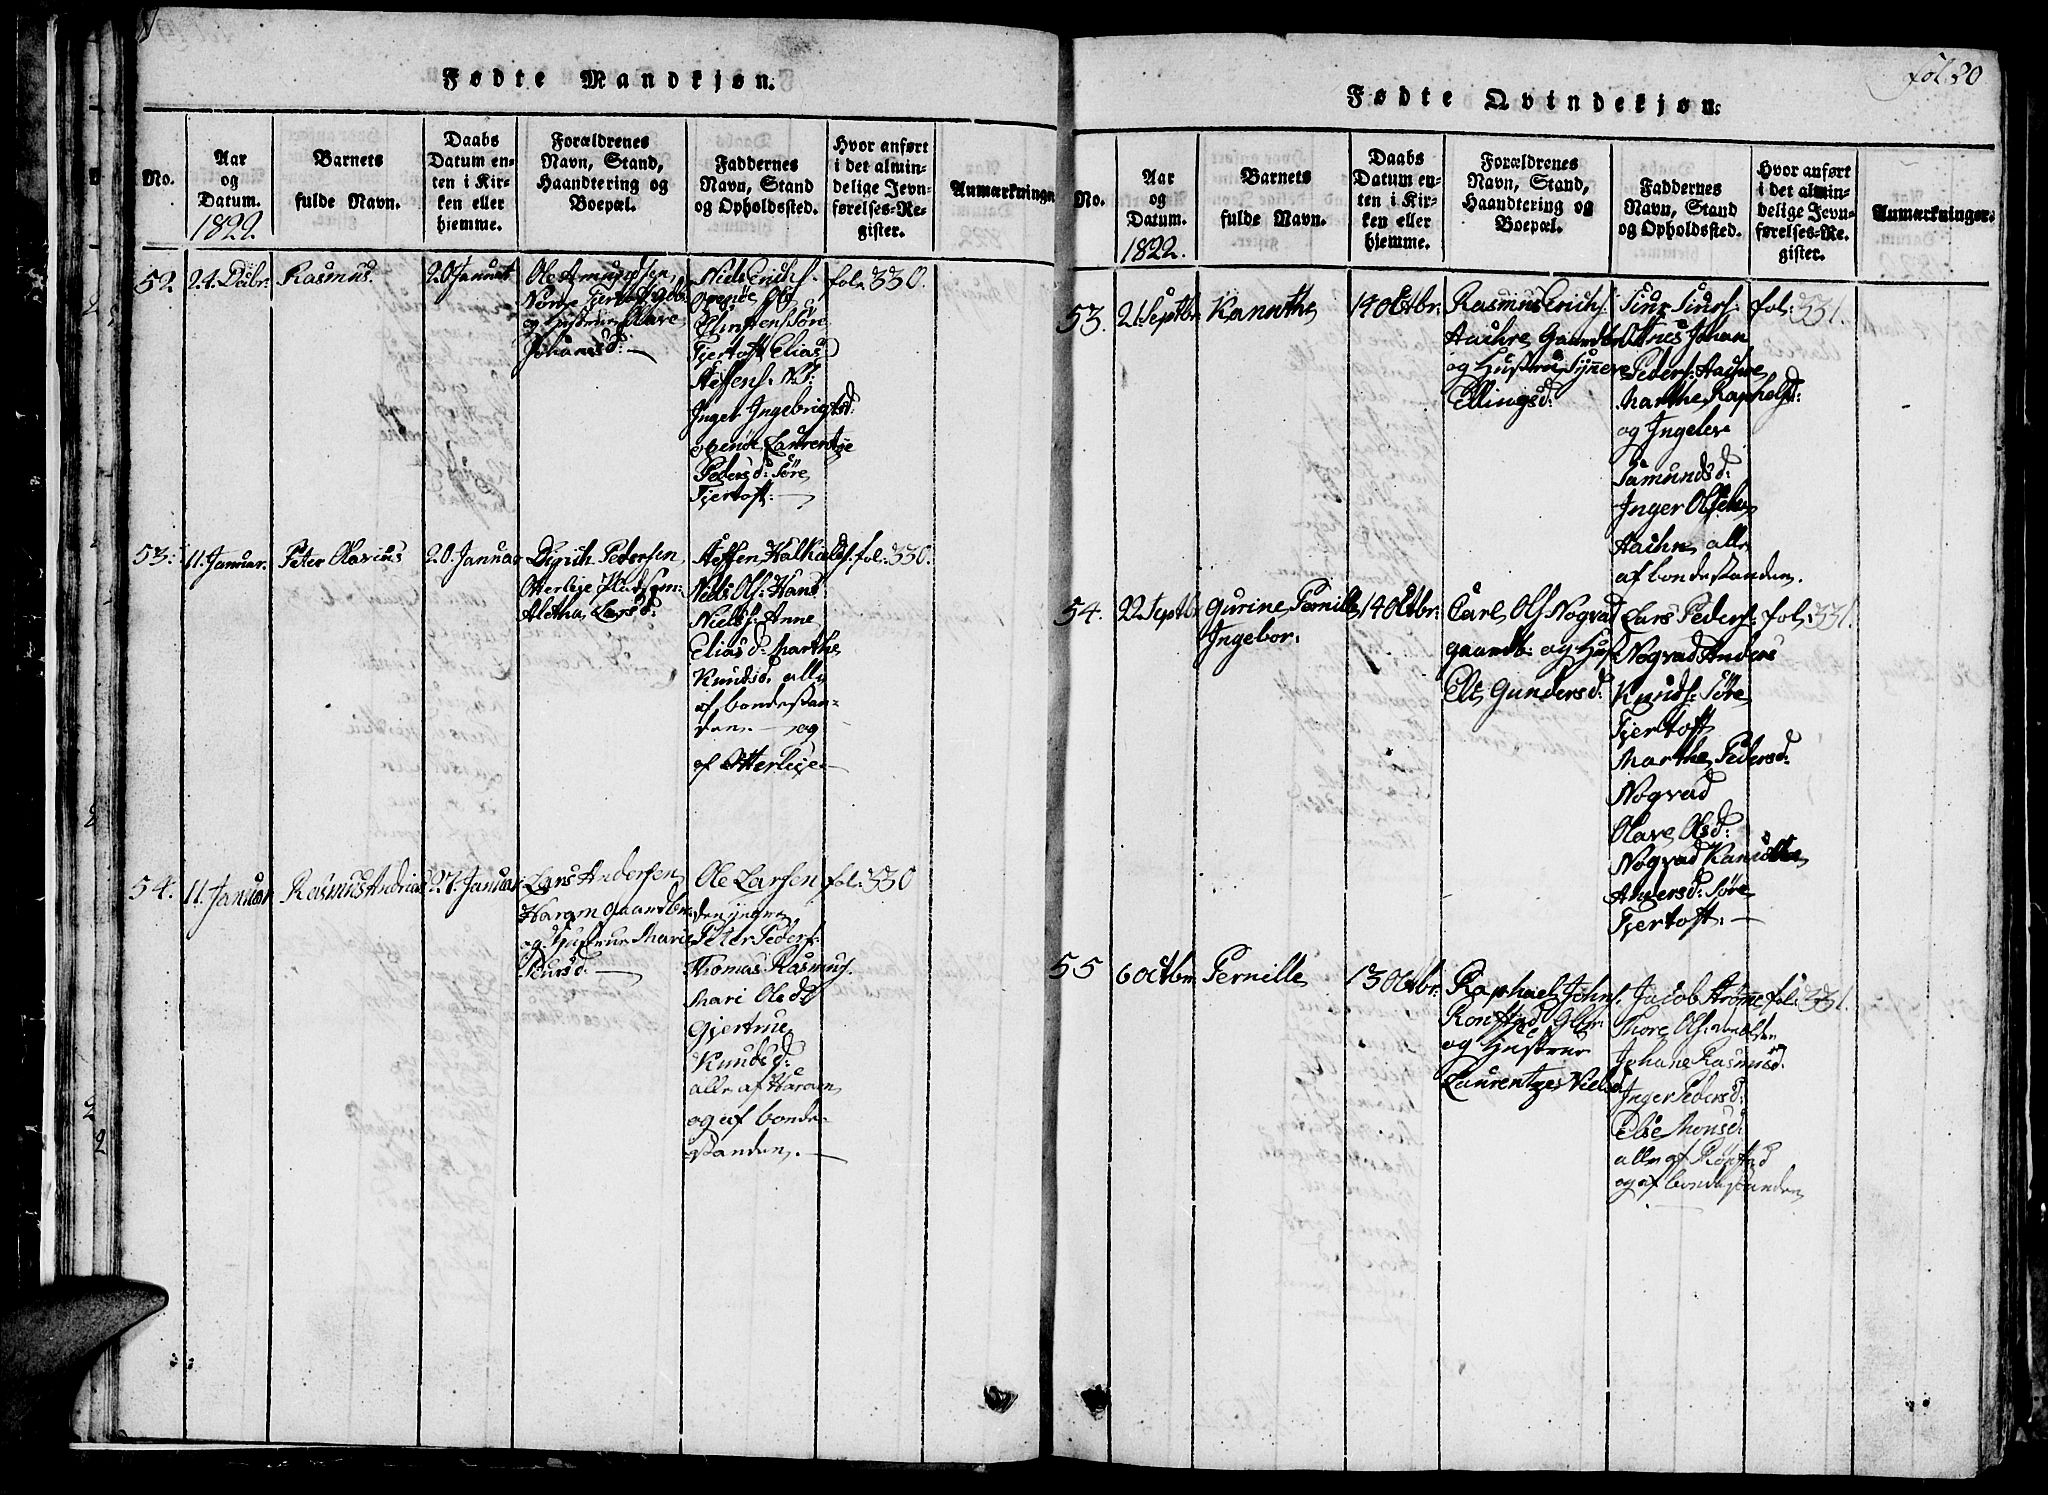 Fødte Mandkjøn.
No.
Aar
og
Datum.
1822.
Barnets
fulde Navn.
Daabs
Datum en-
ten i Kir-
ken eller
hjemme.
Forældrenes
Navn, Stand,
Haandtering og
Boepæl.
Faddernes
Navn, Stand
og Opholdssted.
Hvor anført
i det almin-
delige Jevn-
førelses-Re-
gister.
Anmærkninger
52
24. Dcbr.
Rasmus.
20 Januar
Ole Amundsen
Nordre Fjertoft Gdb:
og Hustrue Olave
Johansd: —
Niels Erichs.
Ole
Søre
Fjertoft, Elias
Steffens.
Inger Ingebrigtsd:
Laurentze
Pedersd: Søre
Fjertoft. —
fol. 330.
53:
11. Januar.
Peter Olavius
20. Januar
Pedersen
Otterleje
Aletha Larsd:
Steffen
Niels Ols: Hans
Niels: Anne
Eliasd: Marthe
Knudsd. alle
af bondestan-
den. — og
af Otterleje. —
fol: 330.
54.
11. Januar
Rasmus Andreas
27. Januar
Lars Andersen
Haram Gaardbr:
og Hustrue Marie
—
Ole Larsen
den yngre
Peter Peders:
Thomas Rasmus.
Mari Olsd:
Gjertrue
Knudsd:
alle af Haram
og af bonde-
standen. —
fol: 330
fol: 20
Fødte Qvindekjøn.
No.
Aar
og
Datum.
1822.
Barnets
fulde Navn.
Daabs
Datum en-
ten i Kir-
ken eller
hjemme.
Forældrenes
Navn, Stand,
Haandtering og
Boepæl.
Faddernes
Navn, Stand
og Opholdssted.
Hvor anført
i det almin-
delige Jevn-
førelses-Re-
gister.
Anmærkninger.
53.
21 Septbr.
Kanuthe
14 Octbr:
Rasmus Erichs.
Aachre Gaardbr:
og Hustrue Synneve
Ellingsd:
Johan
Peders: Aachre
Marthe Raphelsd:
og Ingelev
Samundsd:
Inger
alle
af bondestanden.
fol: 331.
54.
22 Septbr
Gurine Pernille
Ingebor.
14 Octbr:
Carl Ols Nogvad
gaardb: og Hus
Else Gundersd:
Lars Peders:
Nogvad Anders
Knuds: Søre
Fjertoft
Marthe Pedersd:
Nogvad
Olave Olsd:
Nogvad Kanuthe
Andersd: Søre
Fjertoft. —
fol: 331.
55
6 Octbr
Pernille
13 Octbr:
Raphael Johns.
Gbr:
og Hustrue
Laurentze Nielsd:
Jacob
Thore Ols:
Johane Rasmusd.
Inger Pedersd:
Else Monsd:
alle af
og af bondestanden
fol: 331.